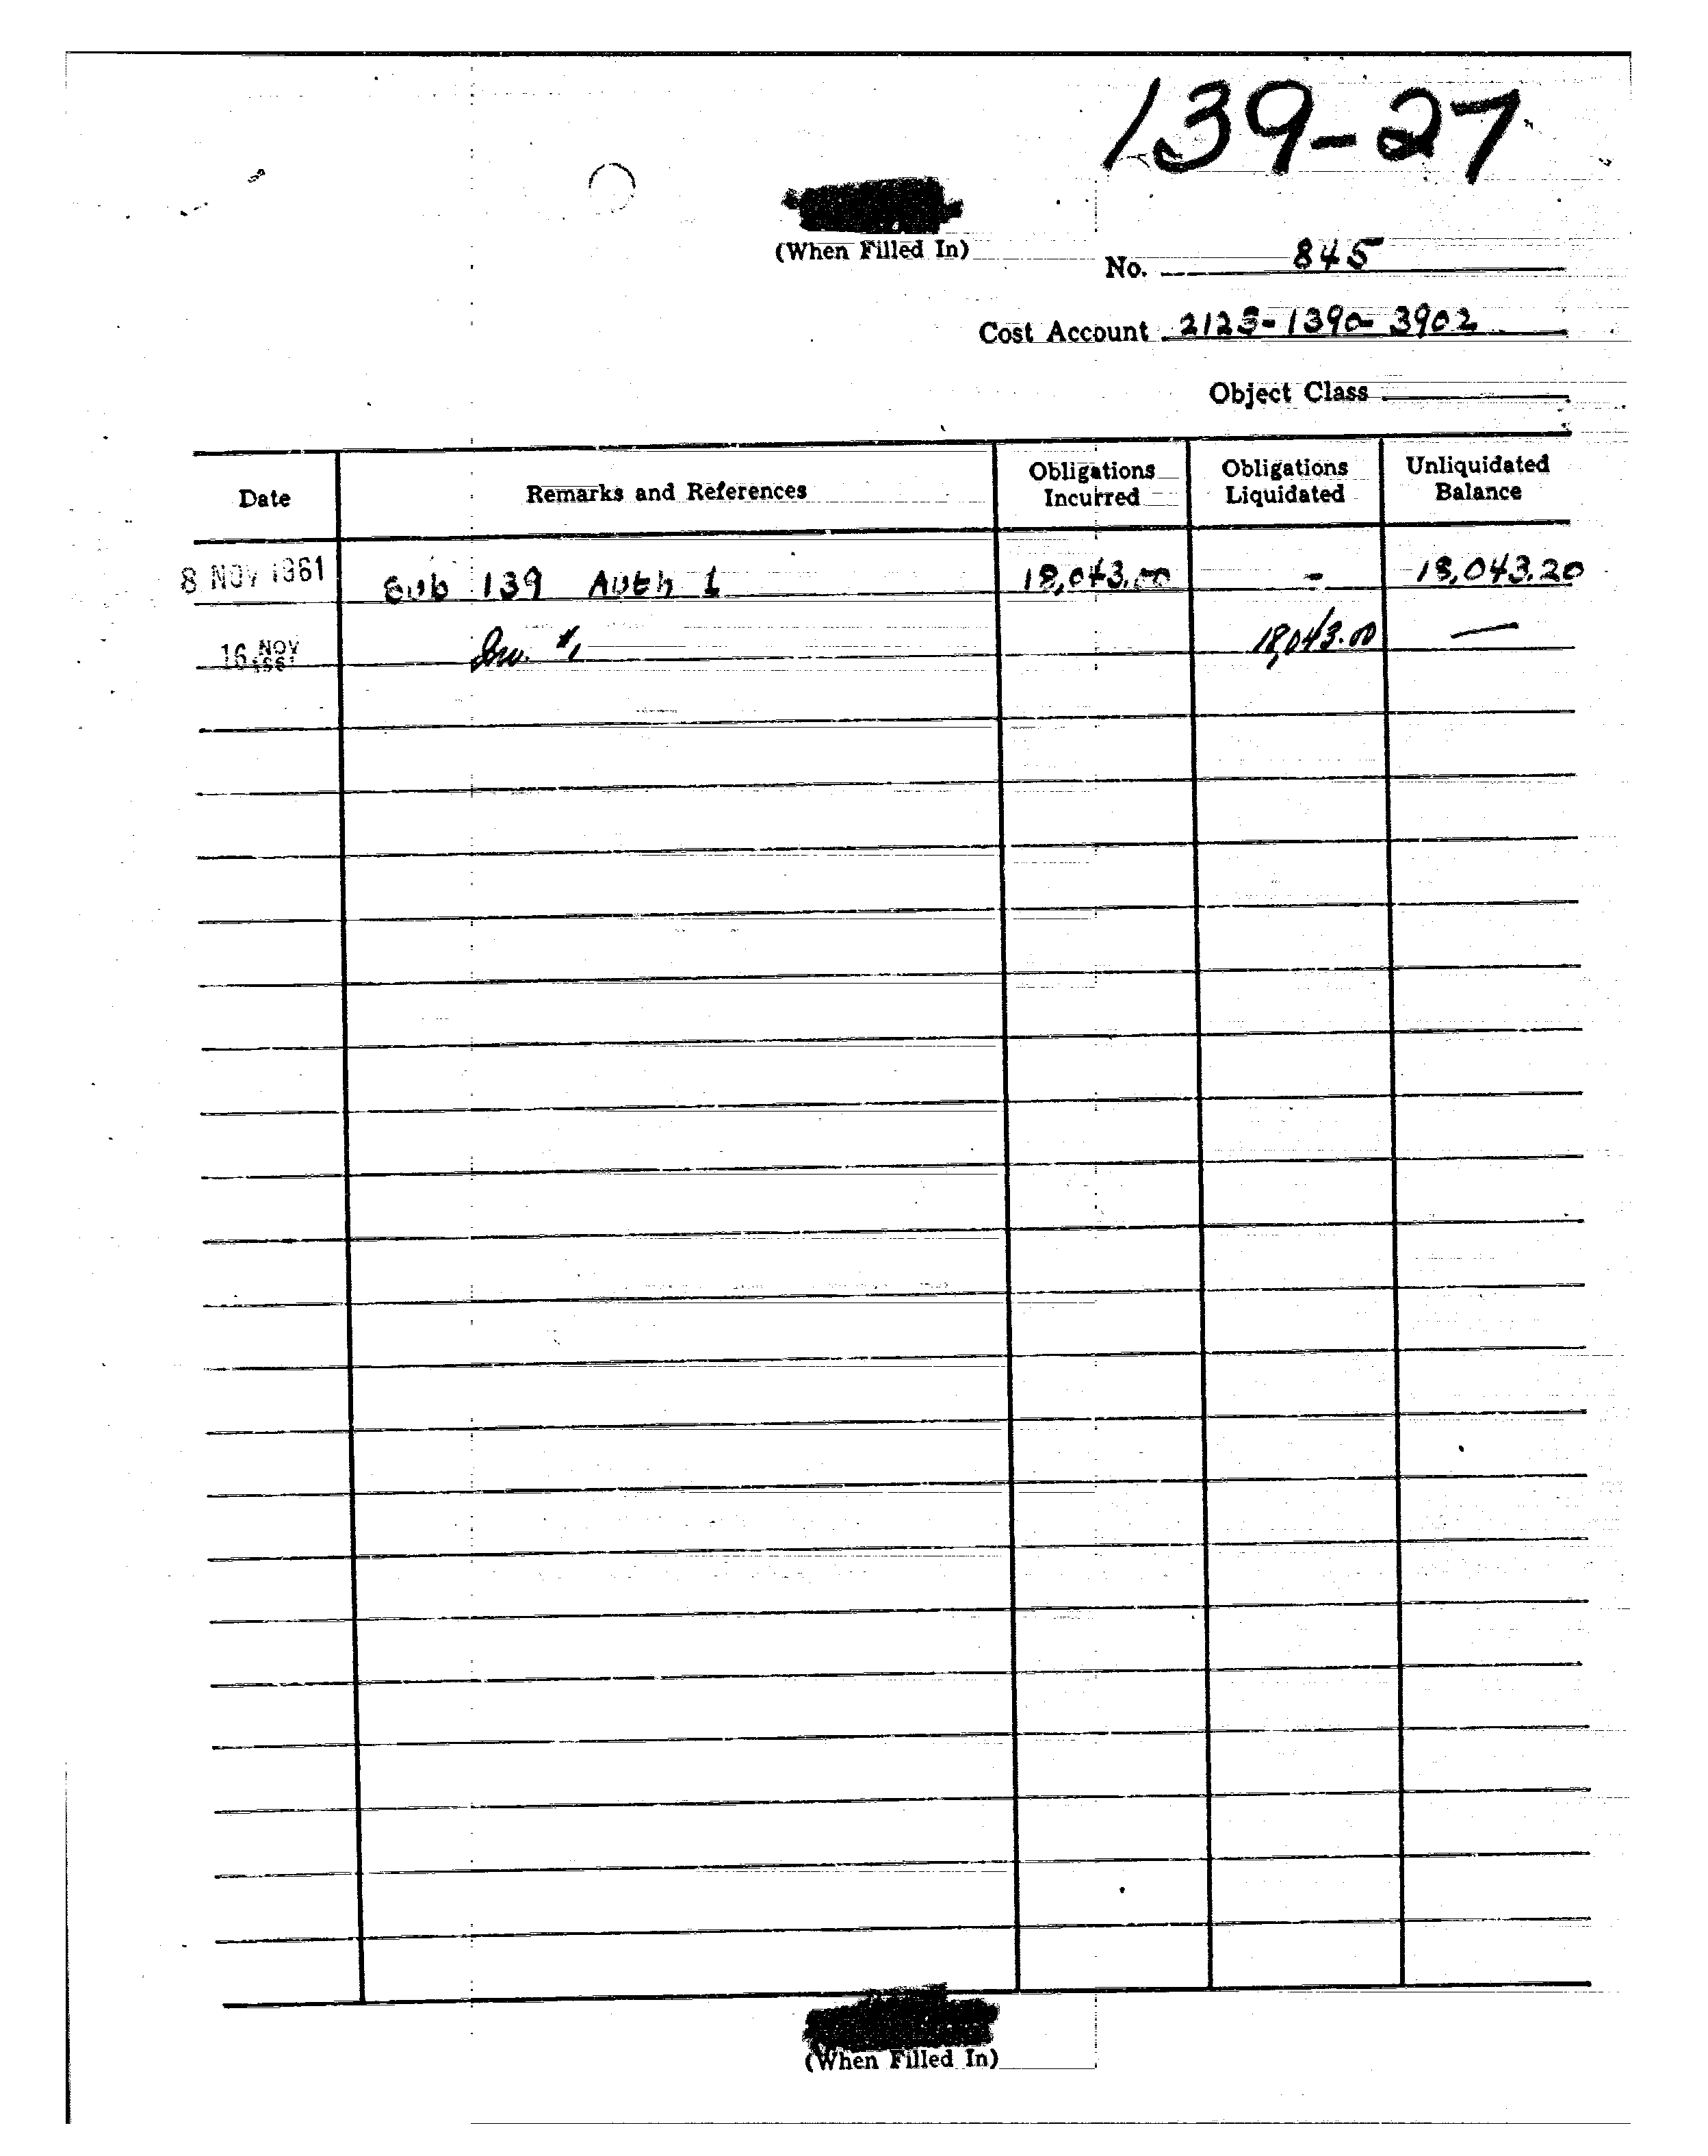 139-27
(When Filled In)
No. 845
Cost Account 2125-1390-3902
Object Class
Date Remarks and References Obligations Incurred Obligations Liquidated Unliquidated Balance
8 NOV 1961 Sub 139 Auth 1 18,043.00 - 18,043.20
16 NOV 1961 Inv. #1 18,043.00 —
(When Filled In)